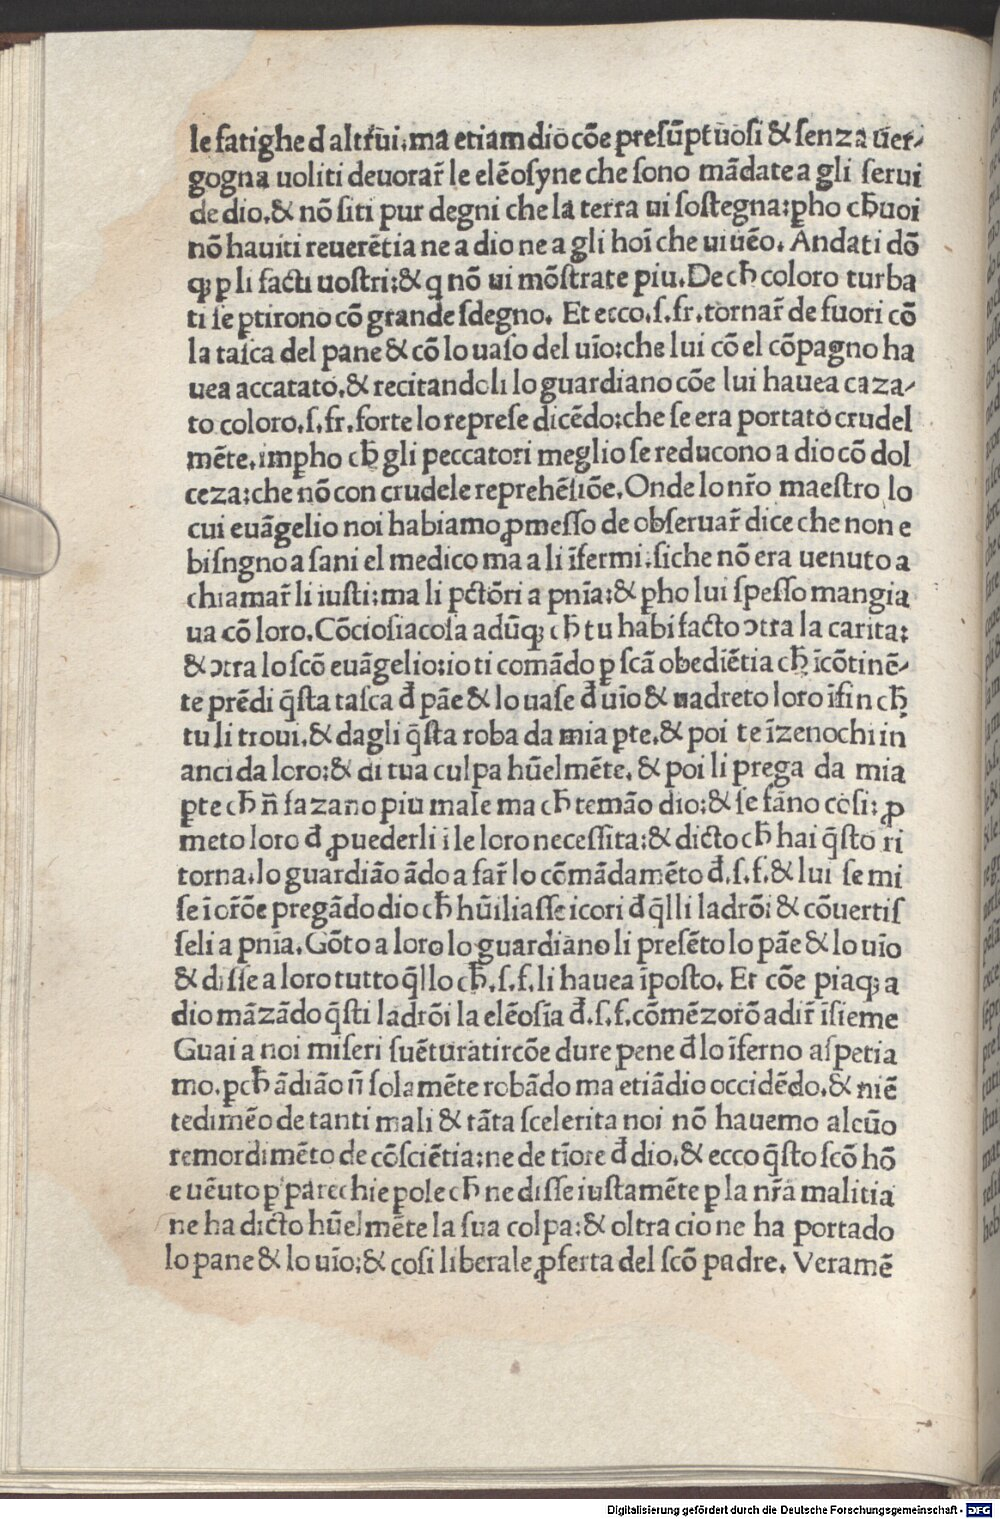 le fatighe d altrui.ma etiamdio cōe presūptuosi & senza ūer-
gogna uoliti deuorar̄ le elēosyne che sono mādate a gli serui
de dio.& nō siti pur degni che la terra ui sostegna:ꝑho cħ uoi
nō haviti reuerētia ne a dio ne a gli hoī che ui uēo. Andati dō
qꝫ ꝑ li facti uostri:& q nō ui mōstrate piu.De cħ coloro turba
ti se ꝑtirono cō grande sdegno. Et ecco.s.fr.tornar̄ de fuori cō
la tasca del pane & cō lo uaso del uīo:che lui cō el cōpagno ha
uea accatato.& recitandoli lo guardiano cōe lui hauea caza-
to coloro.s.fr.forte lo represe dicēdo:che se era portato crudel
mēte.imꝑho cħ gli peccatori meglio se reducono a dio cō dol
ceza:che nō con crudele reprehēsiōe.Onde lo nr̄o maestro lo
cui euāgelio noi habiamo ꝓmesso de obseruar̄ dice che non e
bisngno a sani el medico ma a li īfermi.siche nō era uenuto a
chiamar̄ li iusti:ma li pctōri a pnīa:& ꝑho lui spesso mangia
ua cō loro.Cōciosiacosa adūqꝫ cħ tu habi facto ↄtra la carita:
& ↄtra lo scō euāgelio:io ti comādo ꝑ scā obediētia cħ īcōtinē-
te prēdi q̄sta tasca đ pāe & lo uase đ uīo & uadreto loro īfin cħ
tu li troui.& dagli q̄sta roba da mia ꝑte.& poi te īzenochi in
anci da loro:& di tua culpa hūelmēte. & poi li prega da mia
ꝑte cħ n̄ fazano piu male ma cħ temāo dio:& se fāno cosi: ꝓ
meto loro đ ꝓuederli i le loro necessita:& dicto cħ hai q̄sto ri
torna.lo guardiāo ādo a far̄ lo cōmādamēto đ.s.f.& lui se mi
se ī or̄ōe pregādo dio cħ hūiliasse i cori đ q̄lli ladrōi & cōuertis
seli a pnīa. Gōto a loro lo guardiano li presēto lo pāe & lo uīo
& disse a loro tutto q̄llo cħ.s.f.li hauea īposto. Et cōe piaqꝫ a
dio māzādo q̄sti ladrōi la elēosīa đ.s.f.cōmēzorō a dir̄ īsieme
Guai a noi miseri suēturatircōe dure pene đ lo īferno aspetia
mo.ꝑcħ ādiāo n̄ sola mēte robādo ma etiādio occidēdo.& niē
tedimēo de tanti mali & tāta scelerita noi nō hauemo alcūo
remordimēto de cōsciētia:ne de tīore đ dio.& ecco q̄sto scō hō
e uēuto ꝑ parechie ꝑole cħ ne disse iustamēte ꝑ la nr̄a malitia
ne ha dicto hūelmēte la sua colpa:& oltra cio ne ha portado
lo pane & lo uīo:& cosi liberale ꝓferta del scō padre. Veramē
Digitalisierung gefördert durch die Deutsche Forschungsgemeinschaft - DFG